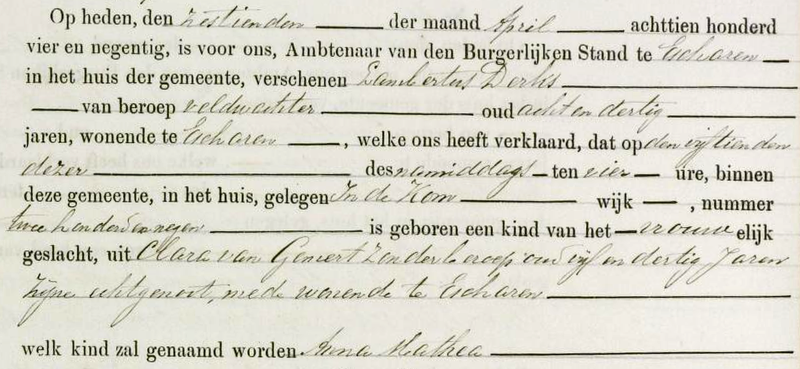 Op heden, den zestienden der maand April achttien honderd
vier en negentig, is voor ons, Ambtenaar van den Burgerlijken Stand te Escharen
in het huis der gemeente, verschenen Lambertus Derks
van beroep veldwachter oud acht en dertig
jaren, wonende te Escharen, welke ons heeft verklaard, dat op den vijftienden
dezer des namiddags ten vier ure, binnen
deze gemeente, in het huis, gelegen In de Kom wijk , nummer
twee honderd en negen is geboren een kind van het vrouwelijk
geslacht, uit Clara van Gemert zonder beroep oud vijf en dertig Jaren
zijne echtgenoot, mede wonende te Escharen
welk kind zal genaamd worden Anna Mathea